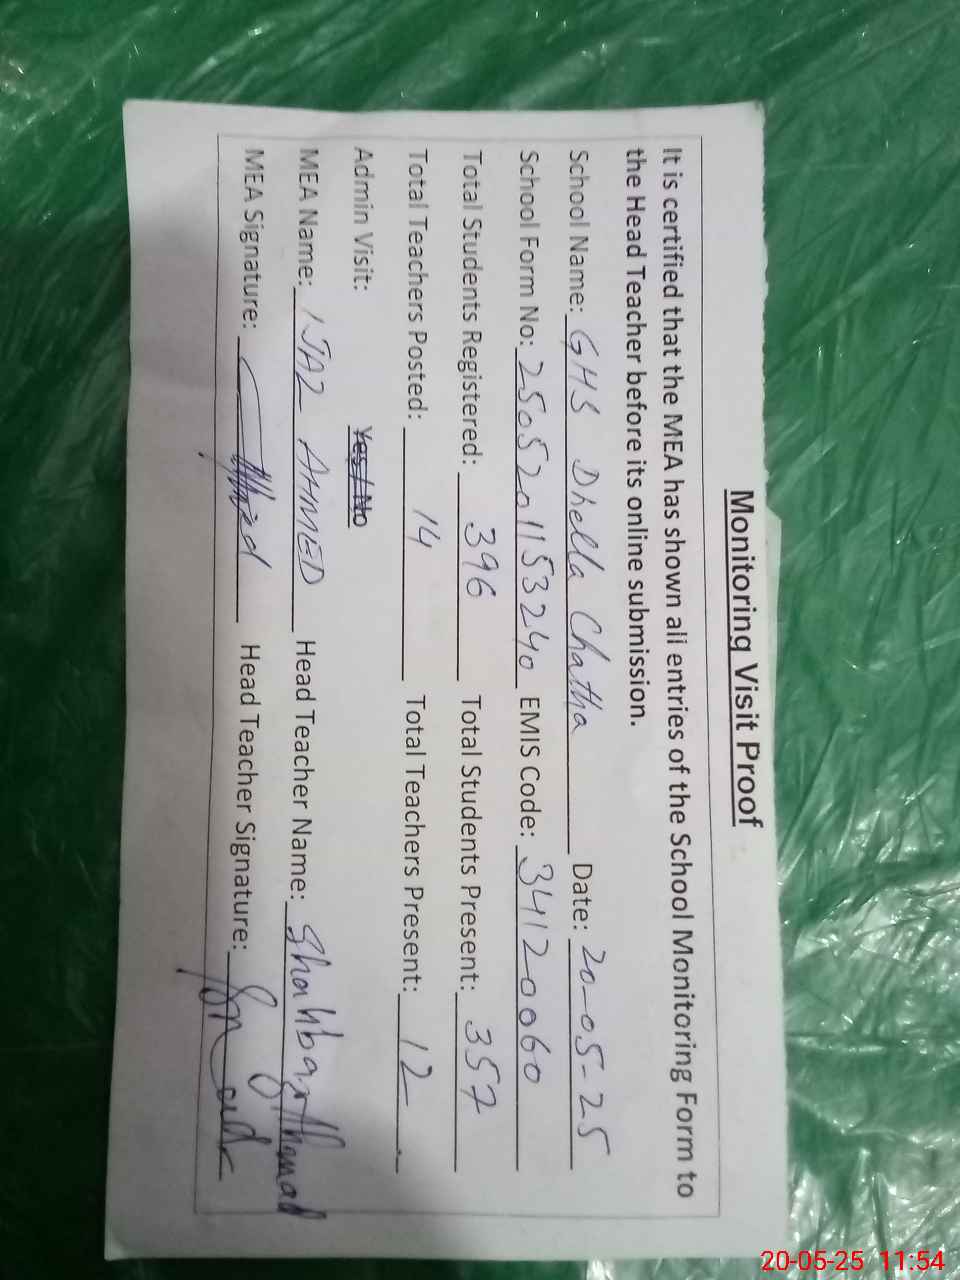 Monitoring Visit Proof
It is certified that the MEA has shown all entries of the School Monitoring Form to
the Head Teacher before its online submission.
School Name: GHS Dhella Chatha Date: 20-05-25
School Form No: 2505201153240 EMIS Code: 34120060
Total Students Registered: 396 Total Students Present: 357
Total Teachers Posted: 14 Total Teachers Present: 12
Admin Visit: Yes / No
MEA Name: IJAZ AHMED Head Teacher Name: Shahbaz Ahmad
MEA Signature: Head Teacher Signature:
20-05-25 11:54